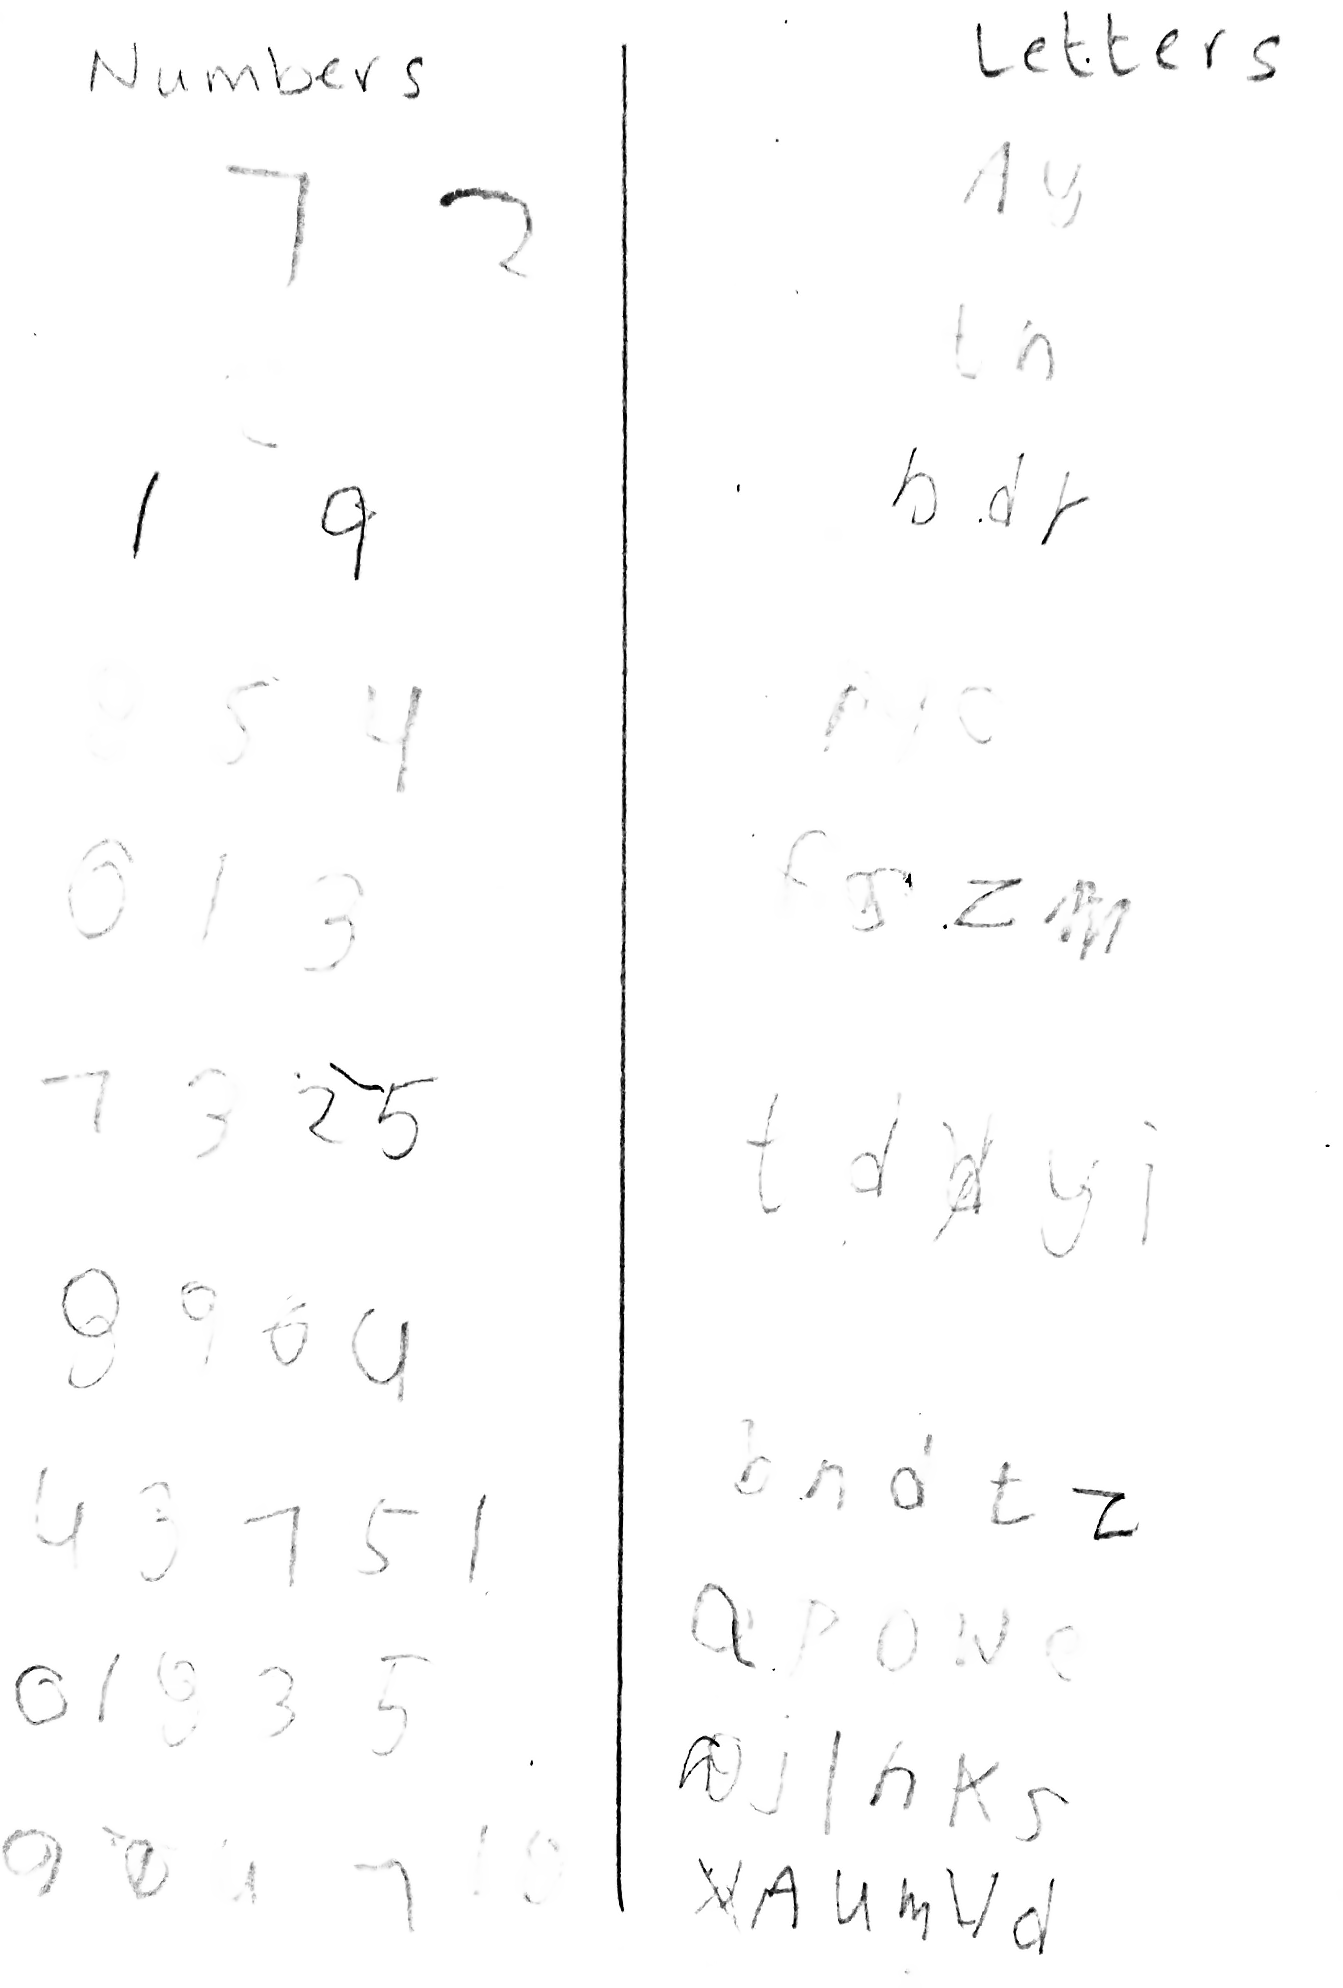 Numbers
7 2
1 9
8 5 4
6 1 3
7 3 2 5
8 9 6 4
4 3 7 5 1
0 1 8 3 5
9 4 7 10
Letters
y
t n
b d r
c
f z
t d y i
b n d t z
a p o w e
j l n k s
A u m V d